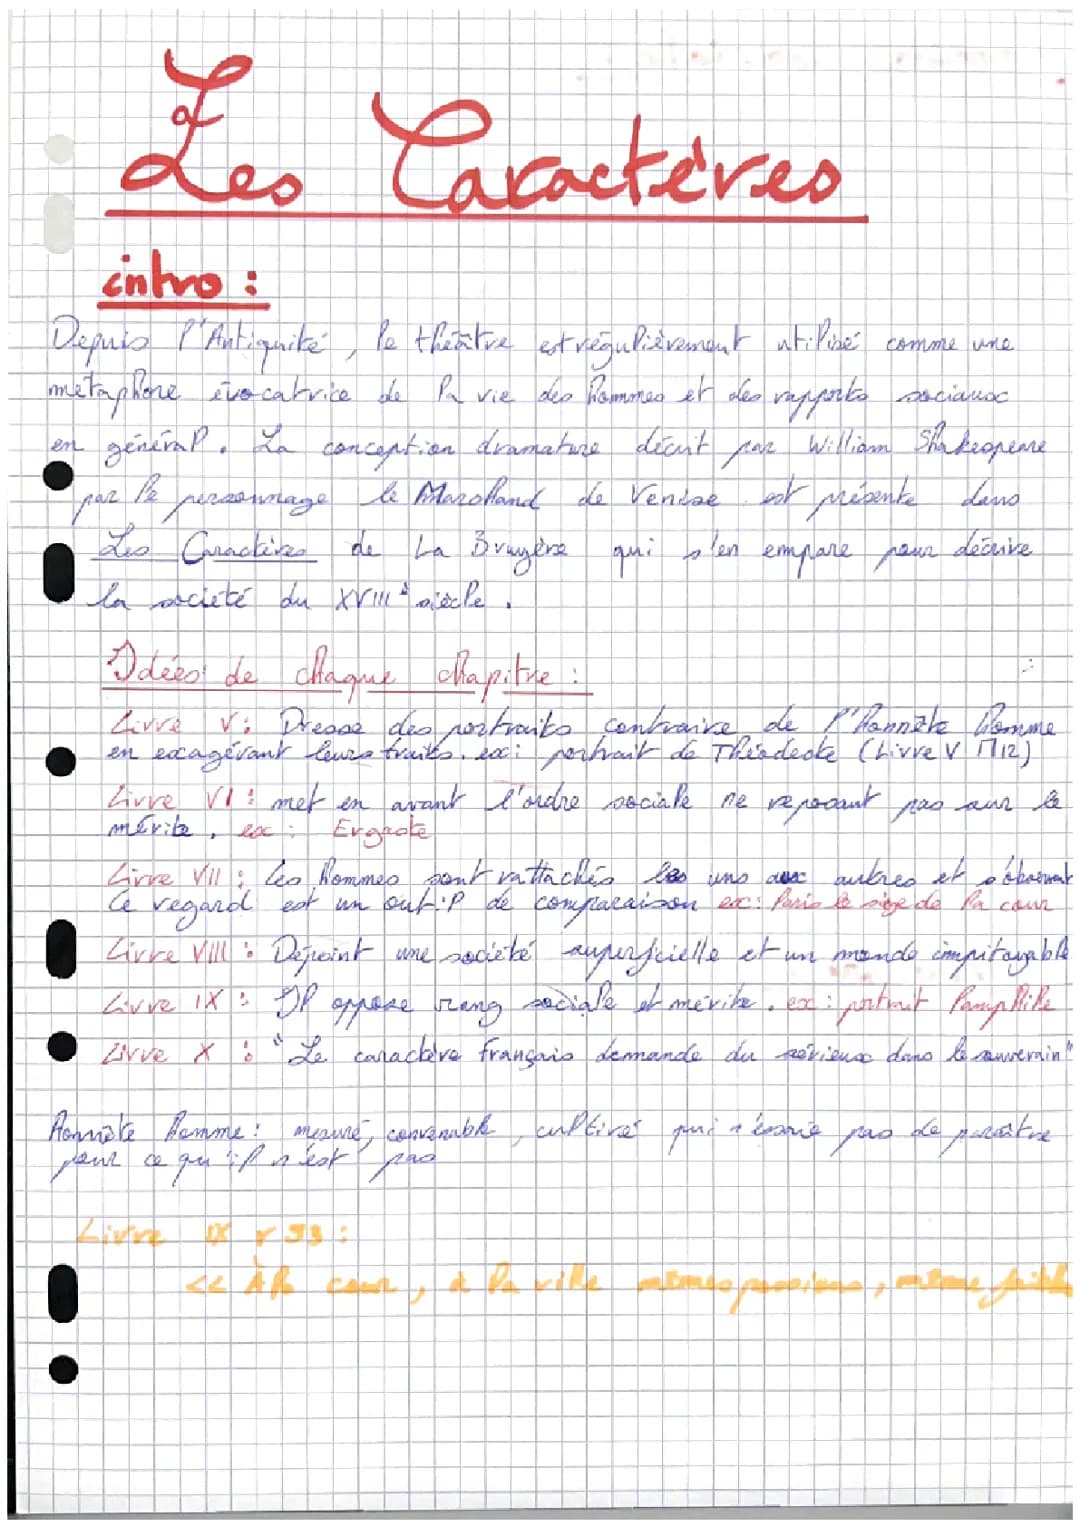 Les Caractères
intro :
Depuis l'Antiquité, le théâtre est régulièrement utilisé comme une
métaphore évocatrice de la vie des hommes et des rapports sociaux
en général. La conception dramature décrit par William Shakespeare
par le personnage le Marchand de Venise est présente dans
Les Caractères de La Bruyère qui s'en empare pour décrire
la société du XVIIIe siècle.
Idées de chaque chapitre :
Livre V : Dresse des portraits contraire de l'honnête homme
en exagérant leurs traits. ex : portrait de Théodecte (Livre V 12)
Livre VI : met en avant l'ordre sociale ne reposant pas sur le
mérite. ex : Ergaste
Livre VII : les hommes sont rattachés les uns aux autres et s'observent
Ce regard est un outil de comparaison ex : Paris le singe de la cour
Livre VIII : Dépeint une société superficielle et un monde impitoyable
Livre IX : Il oppose rang sociale et mérite. ex : portrait Pamphile
Livre X : "Le caractère français demande du sérieux dans le souverain"
Honnête homme : mesuré, convenable, cultivé qui n'essaie pas de paraître
pour ce qu'il n'est pas
Livre IX r 53 :
<< À la cour, à la ville mêmes passions, même